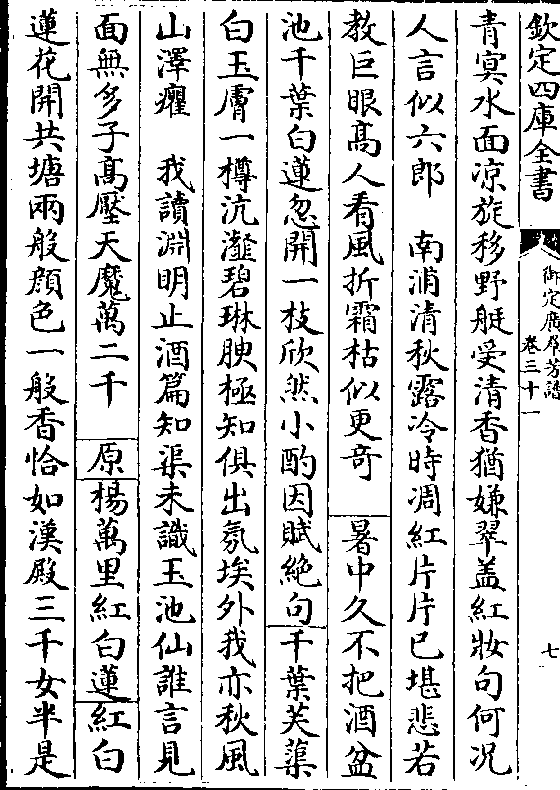 欽定四庫全書
御定廣羣芳譜
卷三十一
七
青㝠水面凉旋移野艇受清香猶嫌翠盖紅妝句何况
人言似六郎　南浦清秋露冷時凋紅片片已堪悲若
教巨眼髙人看風折霜枯似更竒　暑中久不把酒盆
池千葉白蓮忽開一枝欣然小酌因賦絶句千葉芙蕖
白玉膚一樽沆瀣碧琳腴極知俱出氛埃外我亦秋風
山澤癯　我讀淵明止酒篇知渠未識玉池仙誰言見
面無多子髙壓天魔萬二千　原楊萬里紅白蓮紅白
蓮花開共塘兩般顔色一般香恰如漢殿三千女半是